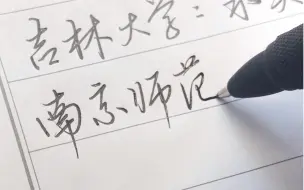 吉林大学：求实
南京师范